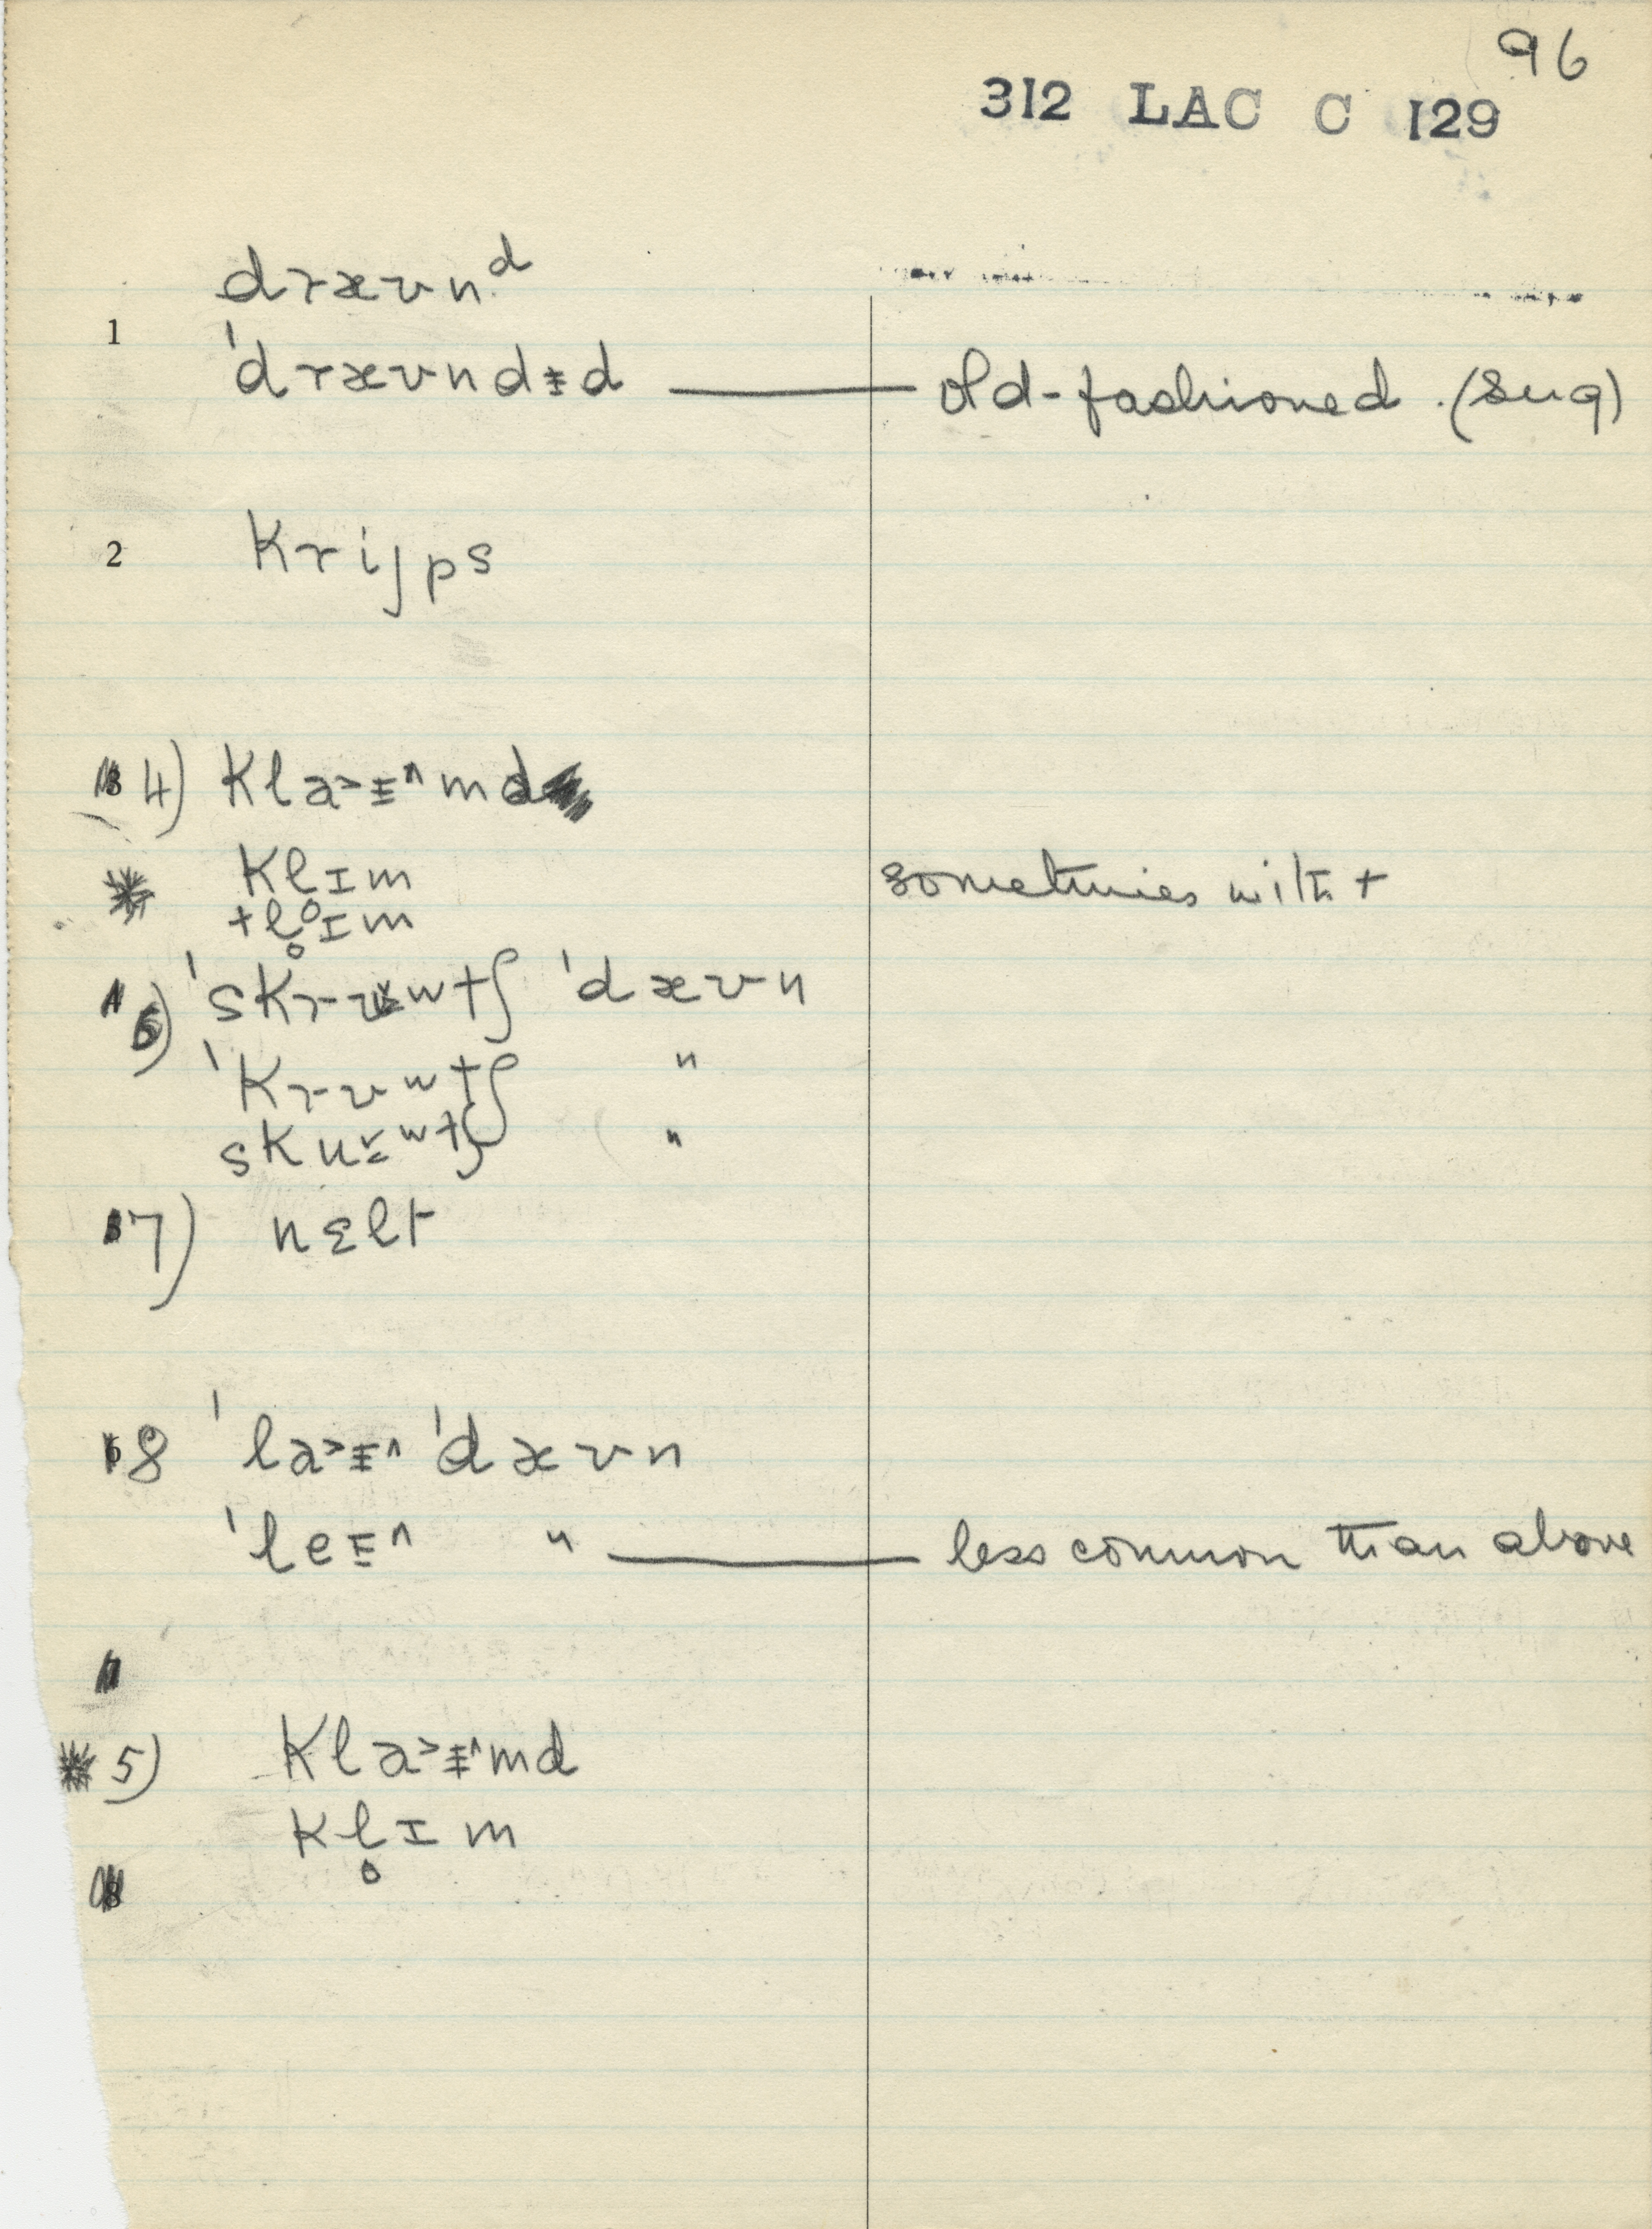 96
312 LAC C 129
dræʊnᵈ
1
ˈdræʊndɨd — old-fashioned (sug)
2 krijps
4) kla˃ɨ^md
* klɪm sometimes with t
tl̥ɪm
6) ˈskrʊwtʃ ˈdæʊn
ˈkrʊwtʃ "
skuʷtʃ "
7) nɛlt
8 ˈla˃ɨ^ ˈdæʊn
ˈleɪ^ " — less common than above
* 5) kla˃ɨ^md
kl̥ɪm